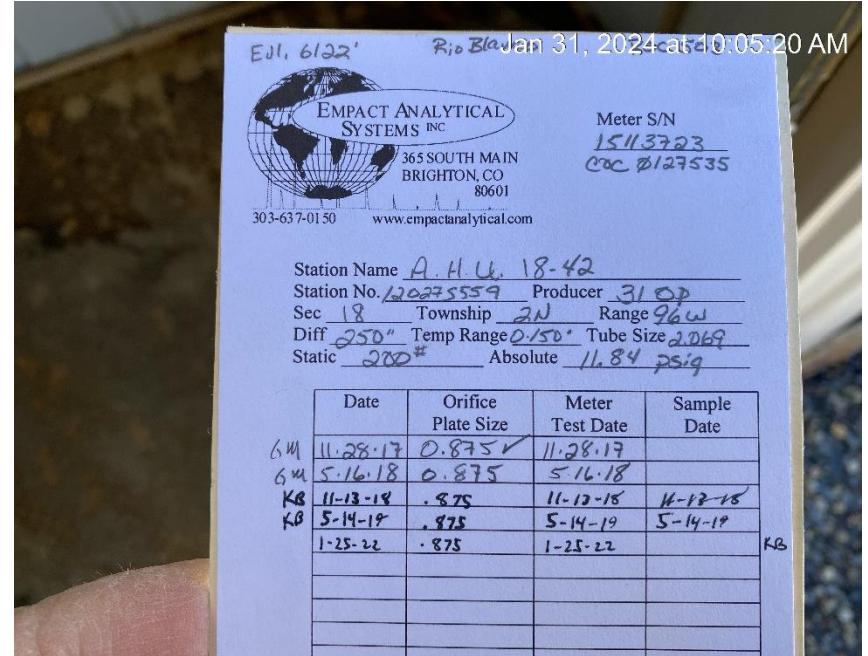 Jan 31, 2024 at 10:05:20 AM
6122' Rio
EMPACT ANALYTICAL
SYSTEMS INC
365 SOUTH MAIN
BRIGHTON, CO
80601
303-637-0150 www.empactanalytical.com
Meter S/N
15113723
COC Ø127535
Station Name A.H.U. 18-42
Station No. 120275559 Producer 31 OP
Sec 18 Township 2N Range 96W
Diff 250" Temp Range 0-150° Tube Size 2.069
Static 200# Absolute 11.84 psig
Date Orifice Plate Size Meter Test Date Sample Date
GM 11.28.17 0.875✓ 11.28.17
GM 5.16.18 0.875 5.16.18
KB 11-13-18 .875 11-13-18 11-13-18
KB 5-14-19 .875 5-14-19 5-14-19
1-25-22 .875 1-25-22 KB